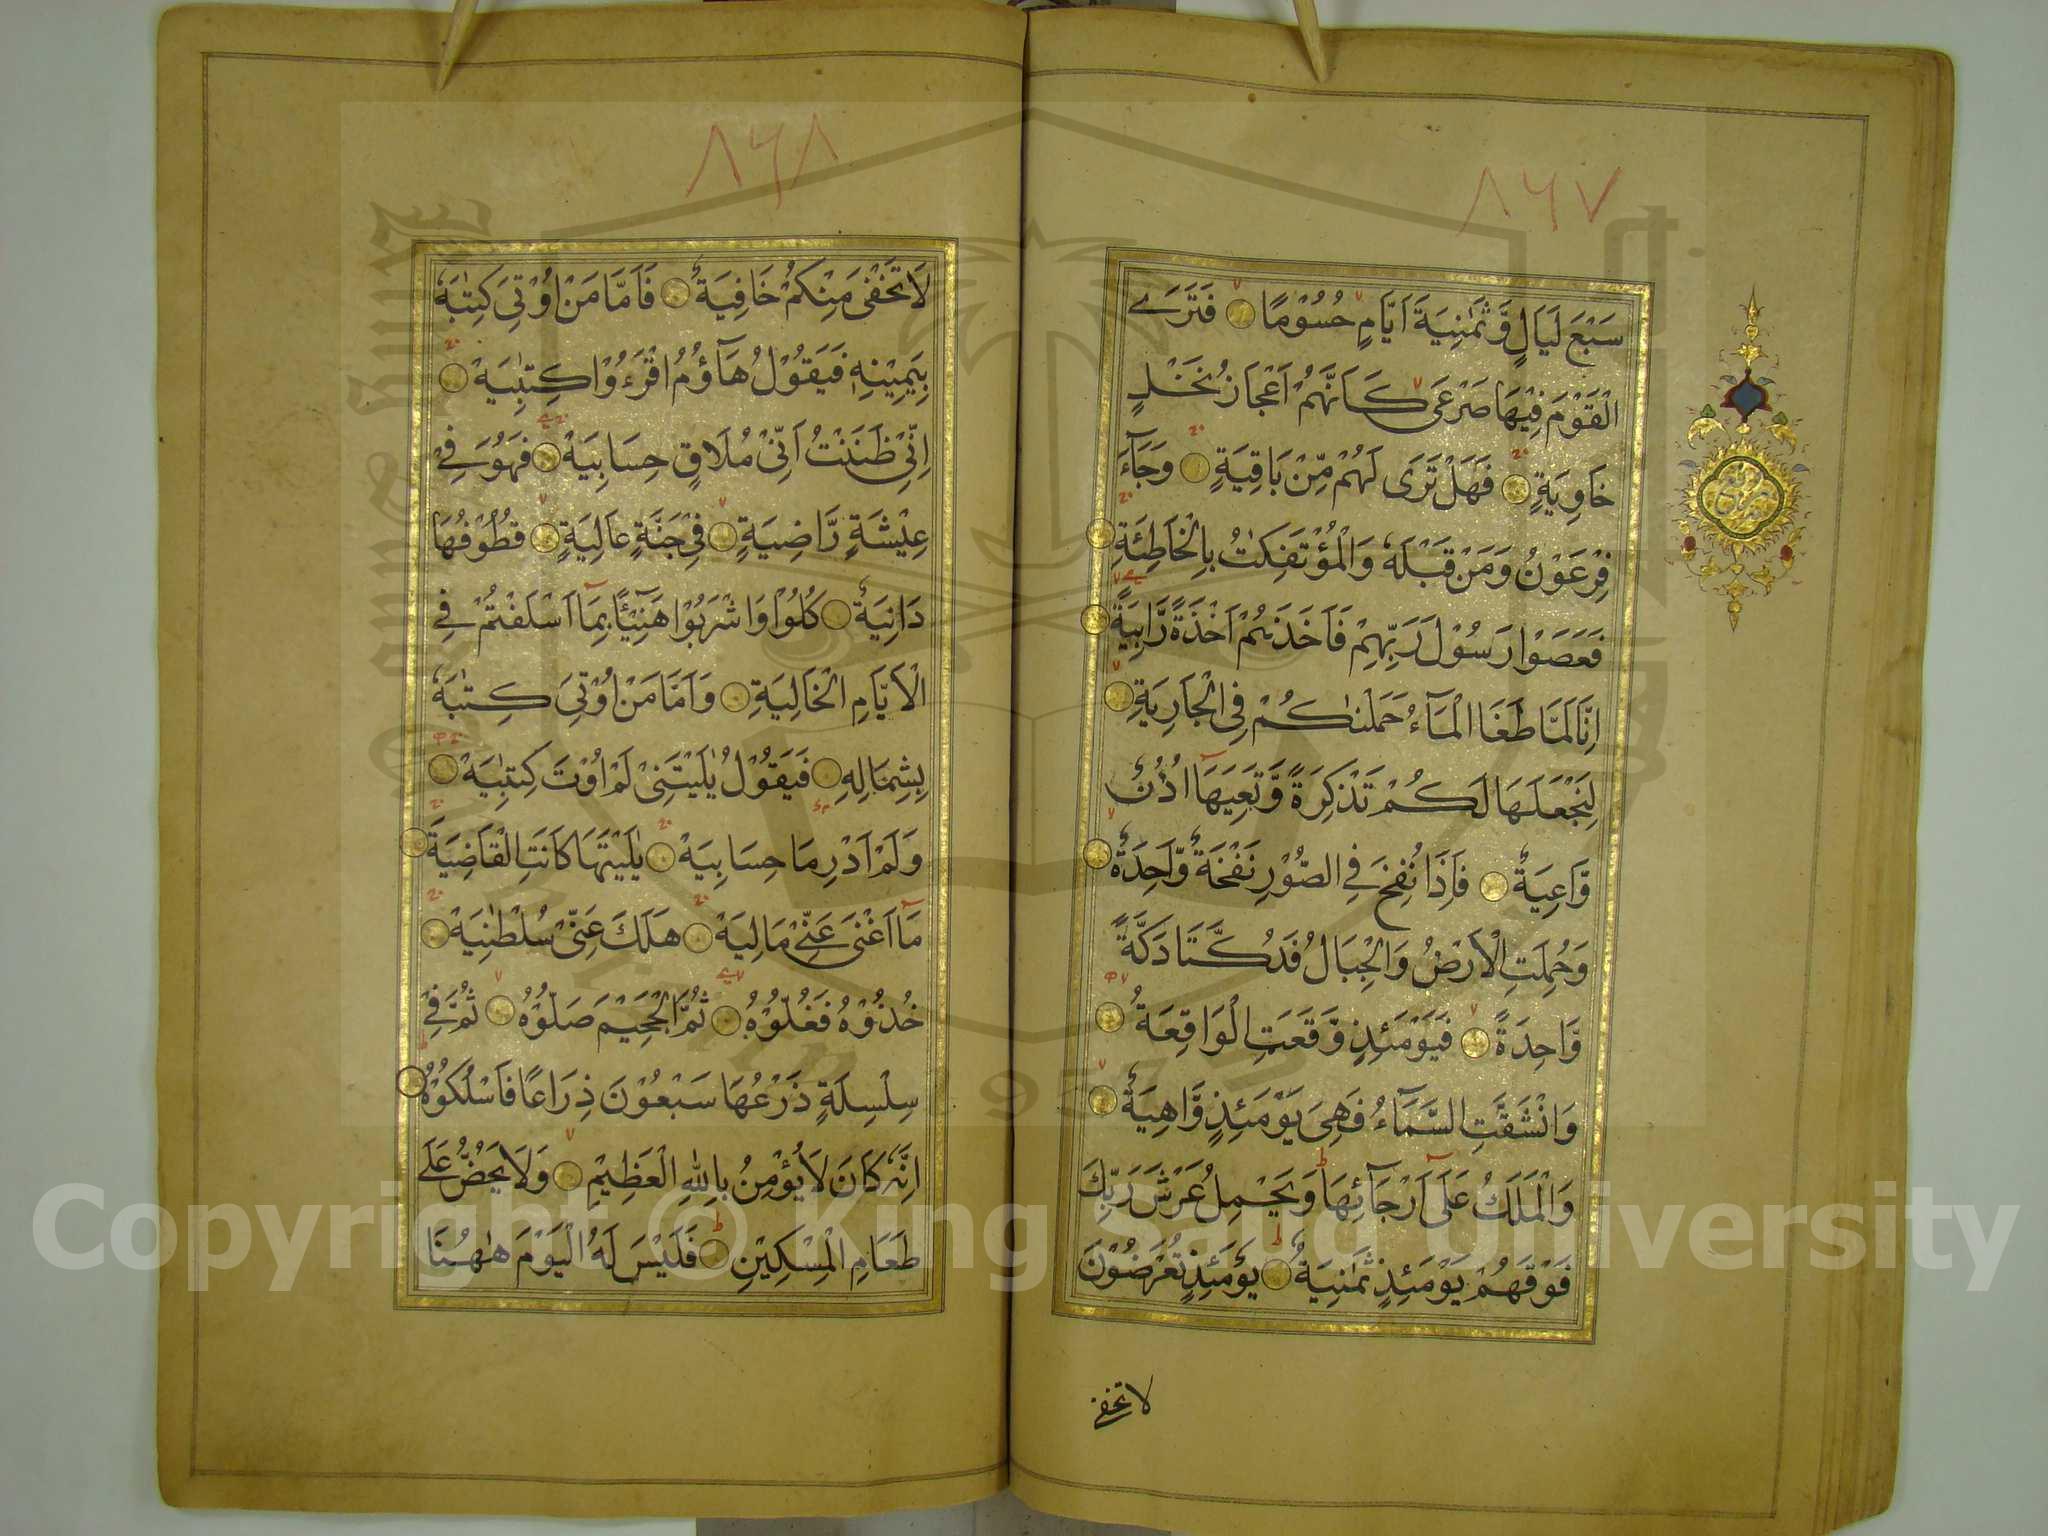 ٨٦٧
سَبْعَ لَيَالٍ وَّثَمٰنِيَةَ اَيَّامٍ حُسُوْمًا فَتَرَے
الْقَوْمَ فِيْهَا صَرْعٰى كَاَنَّهُمْ اَعْجَازُ نَخْلٍ
خَاوِيَةٍ فَهَلْ تَرٰى لَهُمْ مِّنْ بَاقِيَةٍ وَجَآءَ
فِرْعَوْنُ وَمَنْ قَبْلَهٗ وَالْمُؤْتَفِكٰتُ بِالْخَاطِئَةِ
فَعَصَوْا رَسُوْلَ رَبِّهِمْ فَاَخَذَهُمْ اَخْذَةً رَّابِيَةً
اِنَّا لَمَّا طَغَا الْمَآءُ حَمَلْنٰكُمْ فِى الْجَارِيَةِ
لِنَجْعَلَهَا لَكُمْ تَذْكِرَةً وَّتَعِيَهَآ اُذُنٌ
وَّاعِيَةٌ فَاِذَا نُفِخَ فِى الصُّوْرِ نَفْخَةٌ وَّاحِدَةٌ
وَحُمِلَتِ الْاَرْضُ وَالْجِبَالُ فَدُكَّتَا دَكَّةً
وَّاحِدَةً فَيَوْمَئِذٍ وَّقَعَتِ الْوَاقِعَةُ
وَانْشَقَّتِ السَّمَآءُ فَهِىَ يَوْمَئِذٍ وَّاهِيَةٌ
وَالْمَلَكُ عَلٰٓى اَرْجَآئِهَا وَيَحْمِلُ عَرْشَ رَبِّكَ
فَوْقَهُمْ يَوْمَئِذٍ ثَمٰنِيَةٌ يَوْمَئِذٍ تُعْرَضُوْنَ
لا تخفى
٨٦٨
لَا تَخْفٰى مِنْكُمْ خَافِيَةٌ فَاَمَّا مَنْ اُوْتِىَ كِتٰبَهٗ
بِيَمِيْنِهٖ فَيَقُوْلُ هَآؤُمُ اقْرَءُوْا كِتٰبِيَهْ
اِنِّىْ ظَنَنْتُ اَنِّىْ مُلَاقٍ حِسَابِيَهْ فَهُوَ فِىْ
عِيْشَةٍ رَّاضِيَةٍ فِىْ جَنَّةٍ عَالِيَةٍ قُطُوْفُهَا
دَانِيَةٌ كُلُوْا وَاشْرَبُوْا هَنِيْٓئًا بِمَآ اَسْلَفْتُمْ فِى
الْاَيَّامِ الْخَالِيَةِ وَاَمَّا مَنْ اُوْتِىَ كِتٰبَهٗ
بِشِمَالِهٖ فَيَقُوْلُ يٰلَيْتَنِىْ لَمْ اُوْتَ كِتٰبِيَهْ
وَلَمْ اَدْرِ مَا حِسَابِيَهْ يٰلَيْتَهَا كَانَتِ الْقَاضِيَةَ
مَآ اَغْنٰى عَنِّىْ مَالِيَهْ هَلَكَ عَنِّىْ سُلْطٰنِيَهْ
خُذُوْهُ فَغُلُّوْهُ ثُمَّ الْجَحِيْمَ صَلُّوْهُ ثُمَّ فِىْ
سِلْسِلَةٍ ذَرْعُهَا سَبْعُوْنَ ذِرَاعًا فَاسْلُكُوْهُ
اِنَّهٗ كَانَ لَا يُؤْمِنُ بِاللّٰهِ الْعَظِيْمِ وَلَا يَحُضُّ عَلٰى
طَعَامِ الْمِسْكِيْنِ فَلَيْسَ لَهُ الْيَوْمَ هٰهُنَا
Copyright © King Saud University